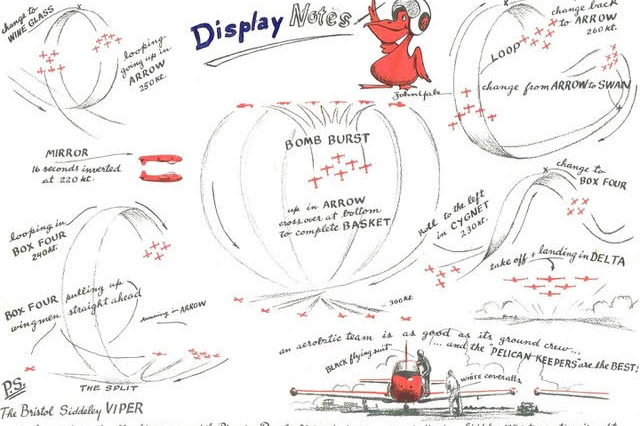 Display Notes
change to
WINE GLASS
looping
going up in
ARROW
250 kt.
John Yale
change back
to ARROW
260 kt.
LOOP
change from ARROW to SWAN
MIRROR
16 seconds inverted
at 220 kt.
BOMB BURST
up in ARROW
crossover at bottom
to complete BASKET
300 kt
Roll to the left
in CYGNET
230 kt.
change to
BOX FOUR
looping in
BOX FOUR
240 kt.
BOX FOUR pulling up
wingmen straight ahead
running in ARROW
THE SPLIT
take off + landing in DELTA
an aerobatic team is as good as its ground crew...
...and the "PELICAN KEEPERS" are the BEST!
BLACK flying suit
WHITE coveralls
P.S.
The Bristol Siddeley VIPER